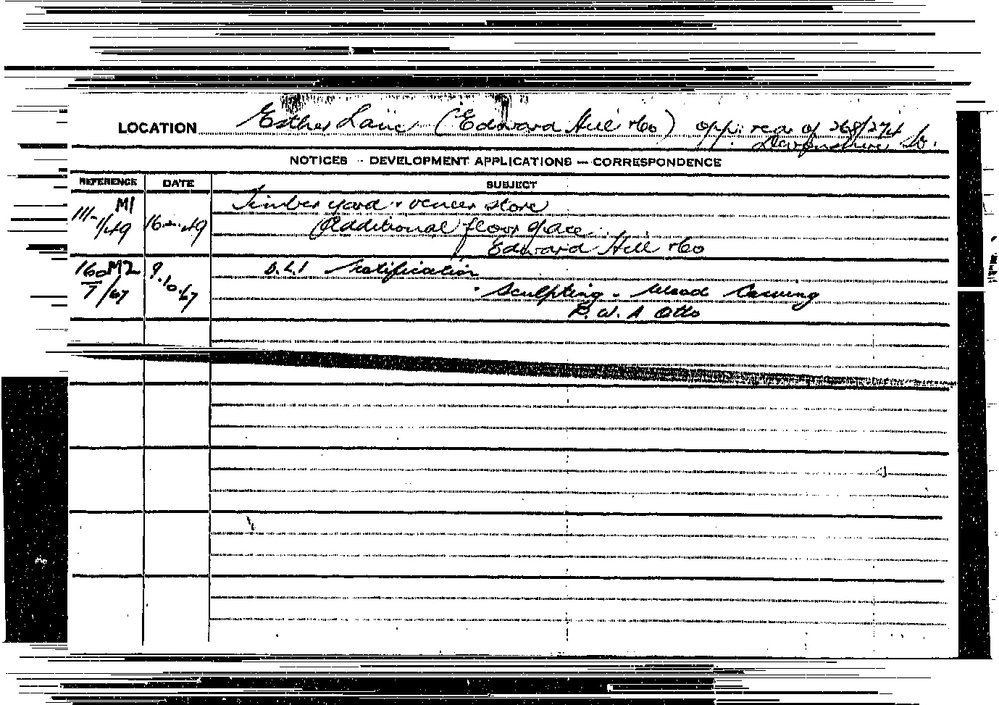 LOCATION Esther Lane (Edward Hill & Co) opp. rear of 268/274
Devonshire St.
NOTICES - DEVELOPMENT APPLICATIONS - CORRESPONDENCE
REFERENCE DATE SUBJECT
M1 Timber yard & veneer store
111-1/49 49 Additional floor space
Edward Hill & Co
160 M2 9.10.67 D.L.I notification
7/67 Sculpting - Wood Carving
R. W. A Otto